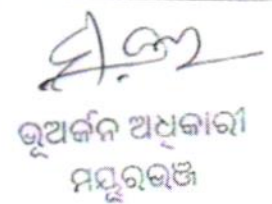 ଭୂଅର୍ଜନ ଅଧିକାରୀ
ମୟୂରଭଞ୍ଜ